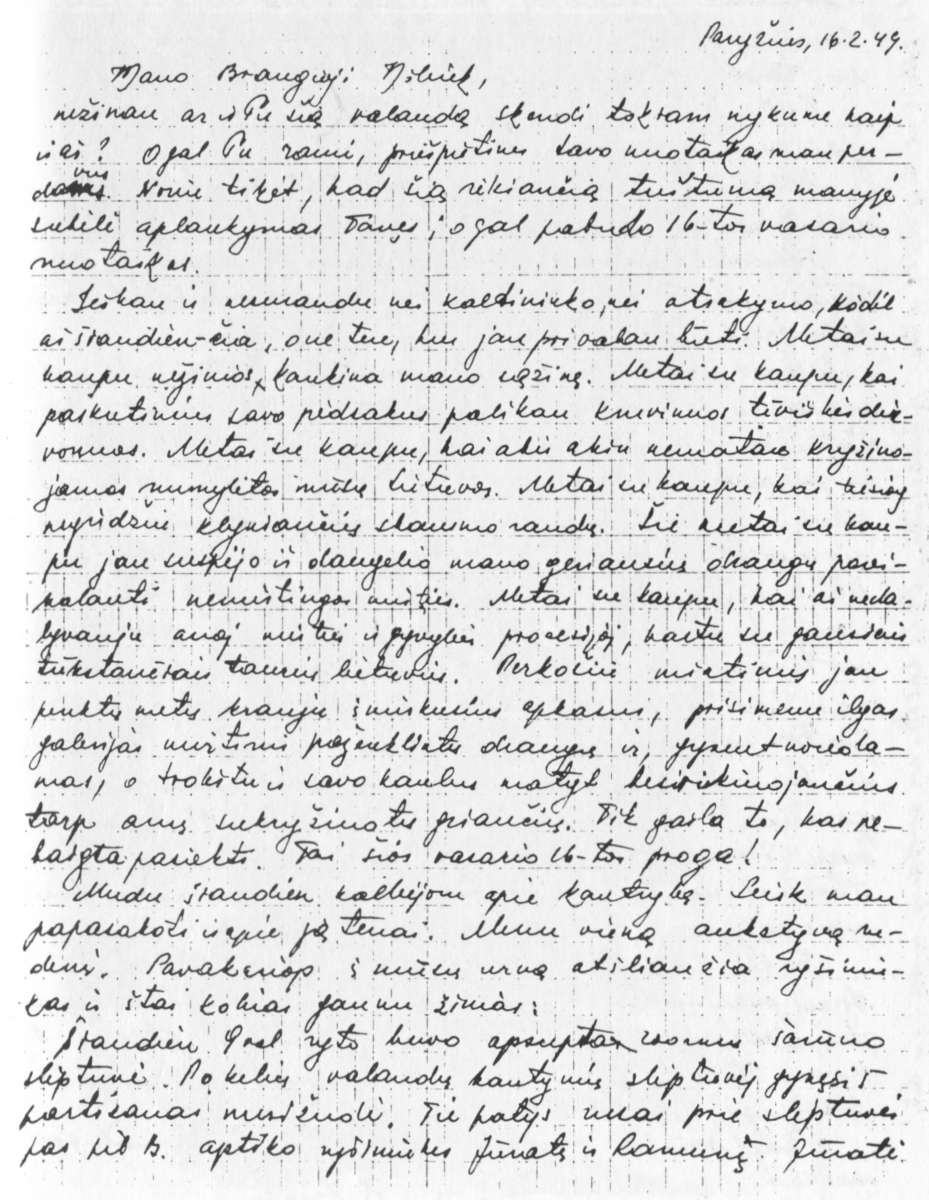 Paryžius, 16.2.49.
Mano Brangioji Nijole,
nežinau ar ir Tu šią valandą skendi tokiam nykume kaip
ir aš? O gal Tu rami, priešpietinės savo nuotaikas man per-
davus. Noris tikėt, kad šią rėkiančią tuštumą manyje
sukėlė aplankymas Tavęs; o gal pabudo 16-tos vasario
nuotaikos.
Ieškau ir nesurandu nei kaltininko, nei atsakymo, kodėl
aš šiandien - čia, o ne ten, kur jau privalau būti. Metai su
kaupu nežinios kankina mano sąžinę. Metai su kaupu, kai
paskutinius savo pėdsakus palikau kruvinuos tėviškės dir-
vonuos. Metai su kaupu, kai abi akis nematau kryžiuo-
jamos numylėtos mūsų Lietuvos. Metai su kaupu, kai tiesiog
negirdžiu klykiančių skausmo raudų. Šie metai su kau-
pu jau suspėjo iš daugelio mano geriausių draugų parei-
kalauti nemirtingos mirties. Metai su kaupu, kai aš neda-
lyvauju anoj mirties ir gyvybės procesijoj, kartu su gausiais
tūkstančiais taurių lietuvių. Perkošiu mintimis jau
penktus metus krauju įmirkusius apkasus, prisimenu ilgas
galerijas mirtimi paženklintų draugų ir, gyvent norėda-
mas, o trokštu ir savo kaulus matyt besirikiuojančius
tarp anų sukryžiuotų griaučių. Tik gaila to, kas ne-
baigta pasiekti. Tai šios vasario 16-tos proga!
Mudu šiandien kalbėjom apie kantrybę. Leisk man
papasakoti ir apie ją tenai. Menu vieną ankstyvą ru-
denį. Pavakariop į mūsų urvą atšliaužia ryšinin-
kas ir štai kokias gaunu žinias:
Šiandien 9 val. ryto buvo apsupta Šarūno
slėptuvė. Po kelių valandų kautynių slėptuvėj gynęsi 5
partizanai nusižudė. Tie patys rusai prie slėptuvės
pas ūk. B. aptiko ryšininkes Jūratę ir Ramunę. Jūratė